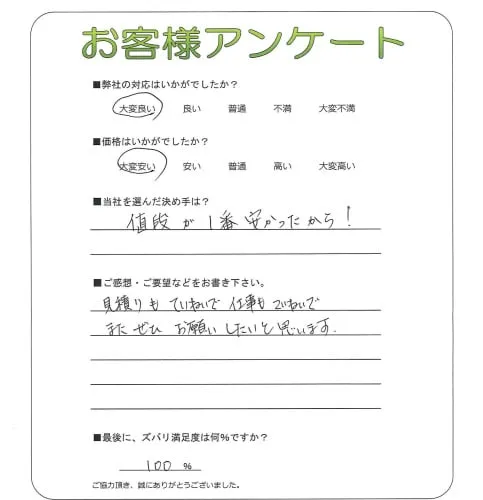 お客様アンケート
■弊社の対応はいかがでしたか?
大変良い 良い 普通 不満 大変不満
■価格はいかがでしたか?
大変安い 安い 普通 高い 大変高い
■当社を選んだ決め手は?
値段が1番安かったから!
■ご感想・ご要望などをお書き下さい。
見積りもていねいで仕事もていねいで
またぜひお願いしたいと思います.
■最後に、ズバリ満足度は何%ですか?
100 %
ご協力頂き、誠にありがとうございました。